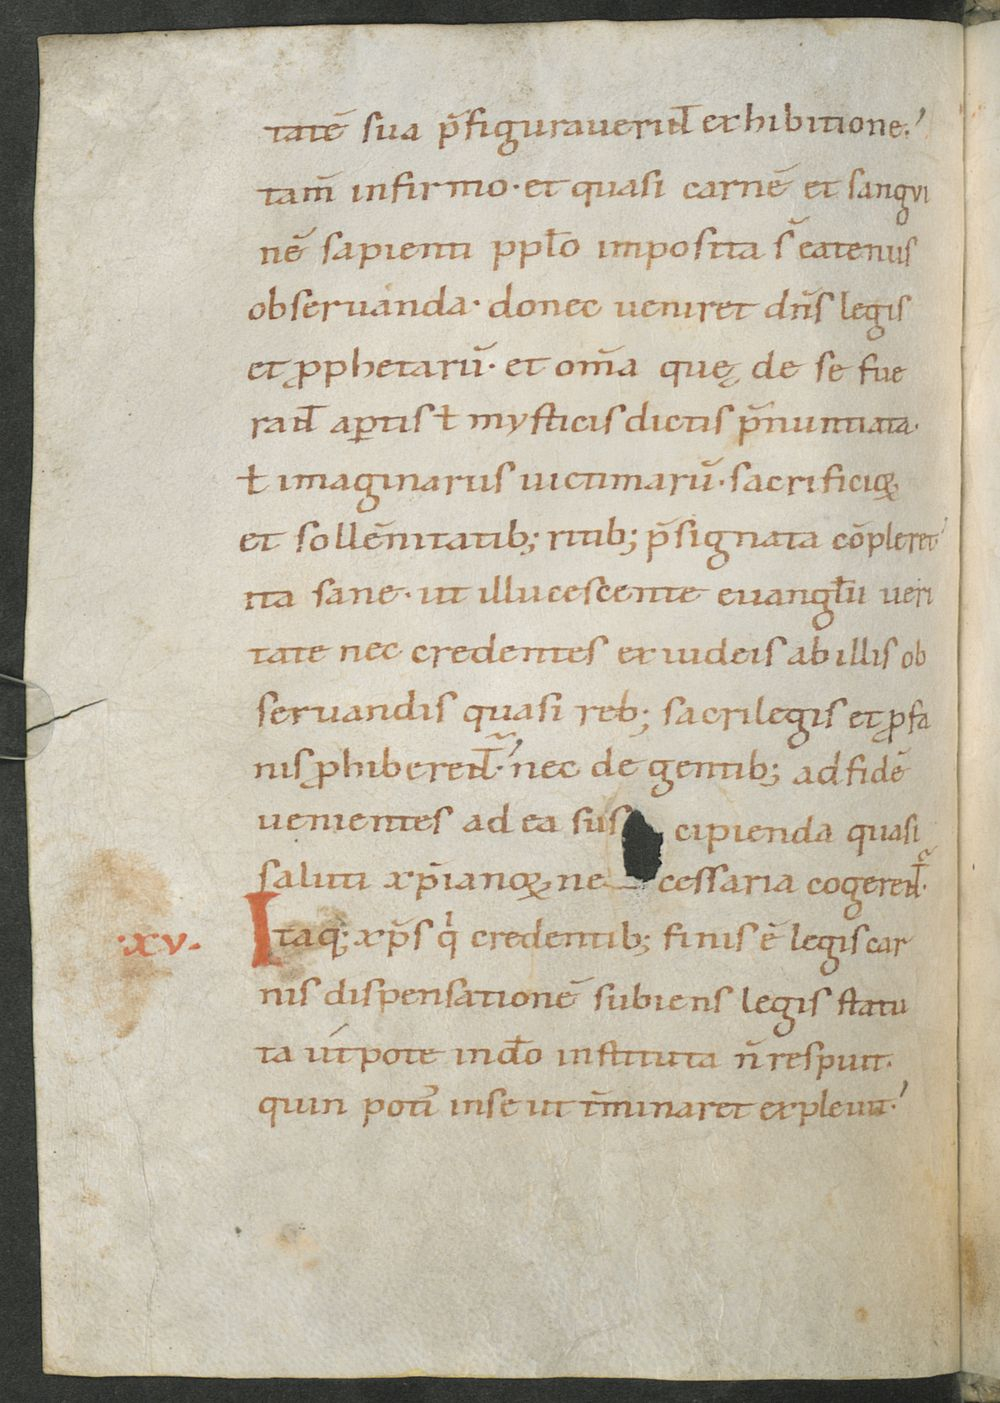 tatē sua p̄figurauerint̄ exhibitione.'
tam̄ infirmo· et quasi carnē et sangui
nē sapienti ppl̄o imposita s̄ eatenus
obseruanda· donec ueniret dn̄s legis
et ꝓphetarū· et om̄a quę de se fue
rant̄ aꝑtis ł mysticis dictis p̄nuntiata·
ł imaginariis uictimarū· sacrificioꝝ
et sollēnitatib; ritib; p̄signata cōpleret'
ita sane· ut illucescente euangl̄ii ueri
tate nec credentes ex iudeis ab illis ob
seruandis quasi reb; sacrilegis et ꝓfa
nis ꝓhiberent̄.' nec de gentib; ad fidē
uenientes ad ea sus cipienda quasi
saluti xp̄ianoꝝ ne cessaria cogerent̄·
·xv· Itaq; xp̄s qⁱ credentib; finis ē legis car
nis dispensationē subiens legis statu
ta út pote in dō instituta n̄ respuit·
quin potiꝰ in se ut t̄minaret expleuit.'